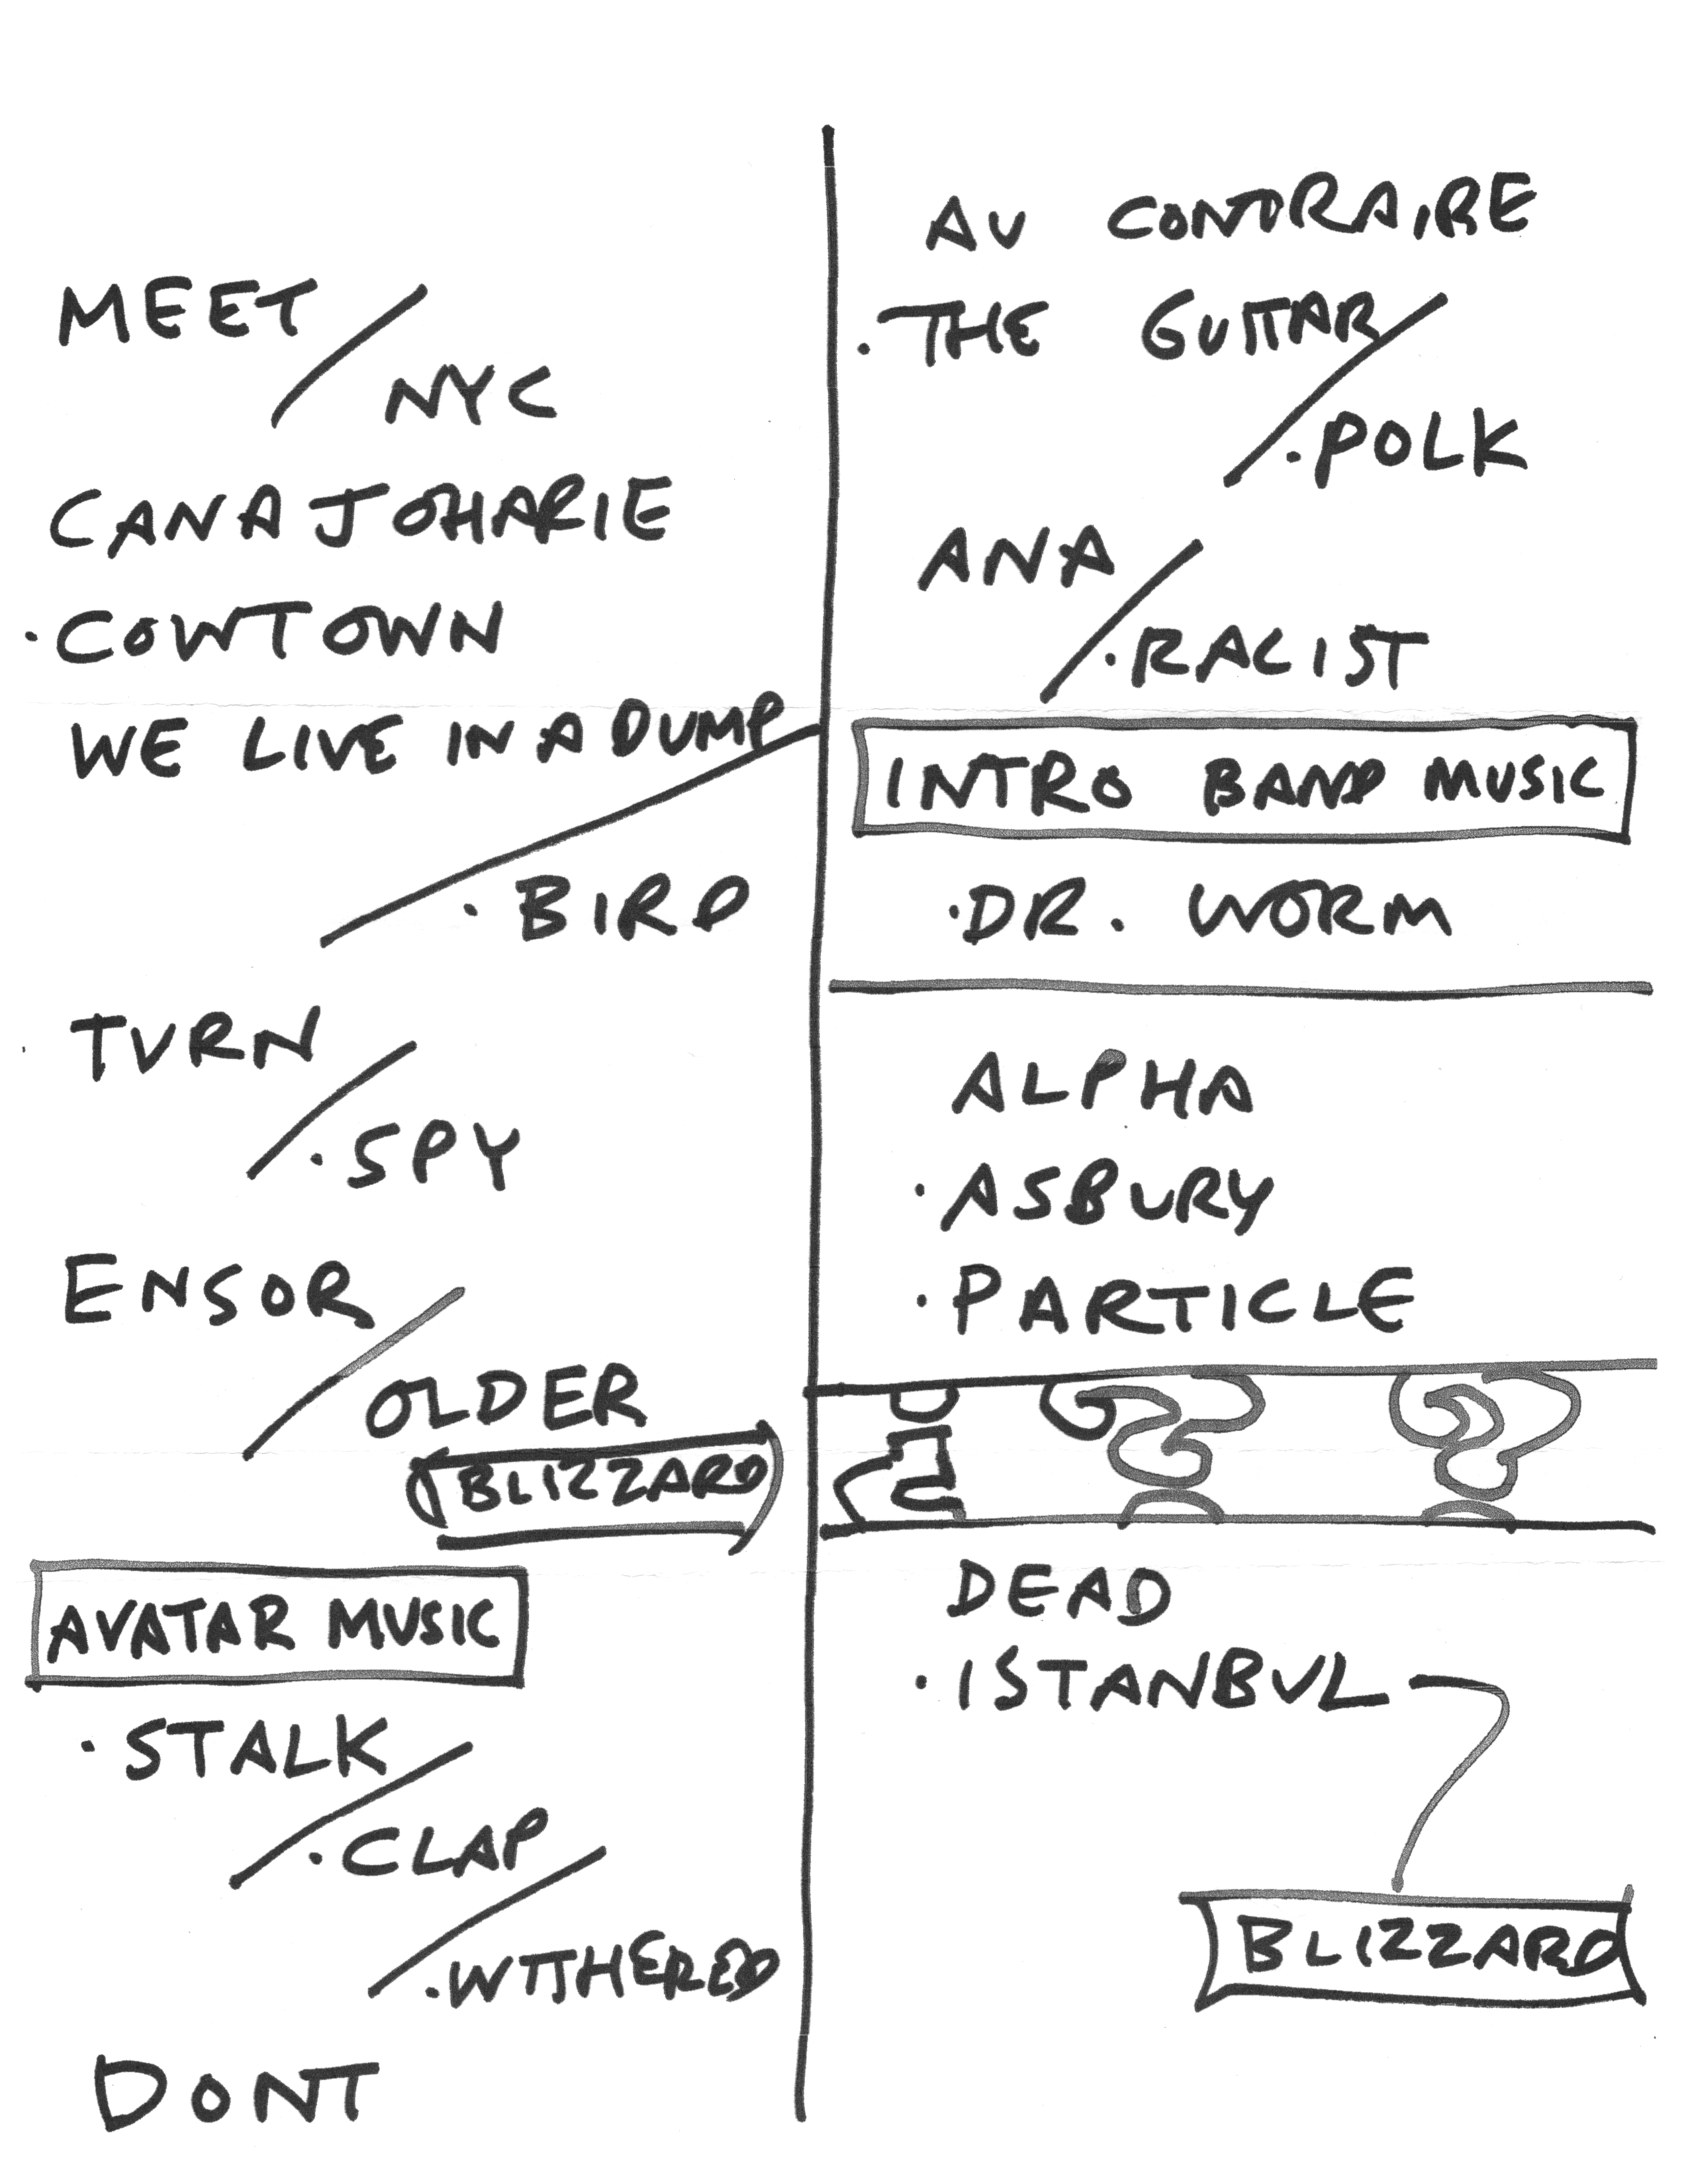 MEET
NYC
CANAJOHARIE
·COWTOWN
WE LIVE IN A DUMP
·BIRD
TURN
·SPY
ENSOR
OLDER
BLIZZARD
AVATAR MUSIC
·STALK
·CLAP
·WITHERED
DONT
AU CONTRAIRE
·THE GUITAR
·POLK
ANA
·RACIST
INTRO BAND MUSIC
·DR. WORM
ALPHA
·ASBURY
·PARTICLE
DEAD
·ISTANBUL
BLIZZARD